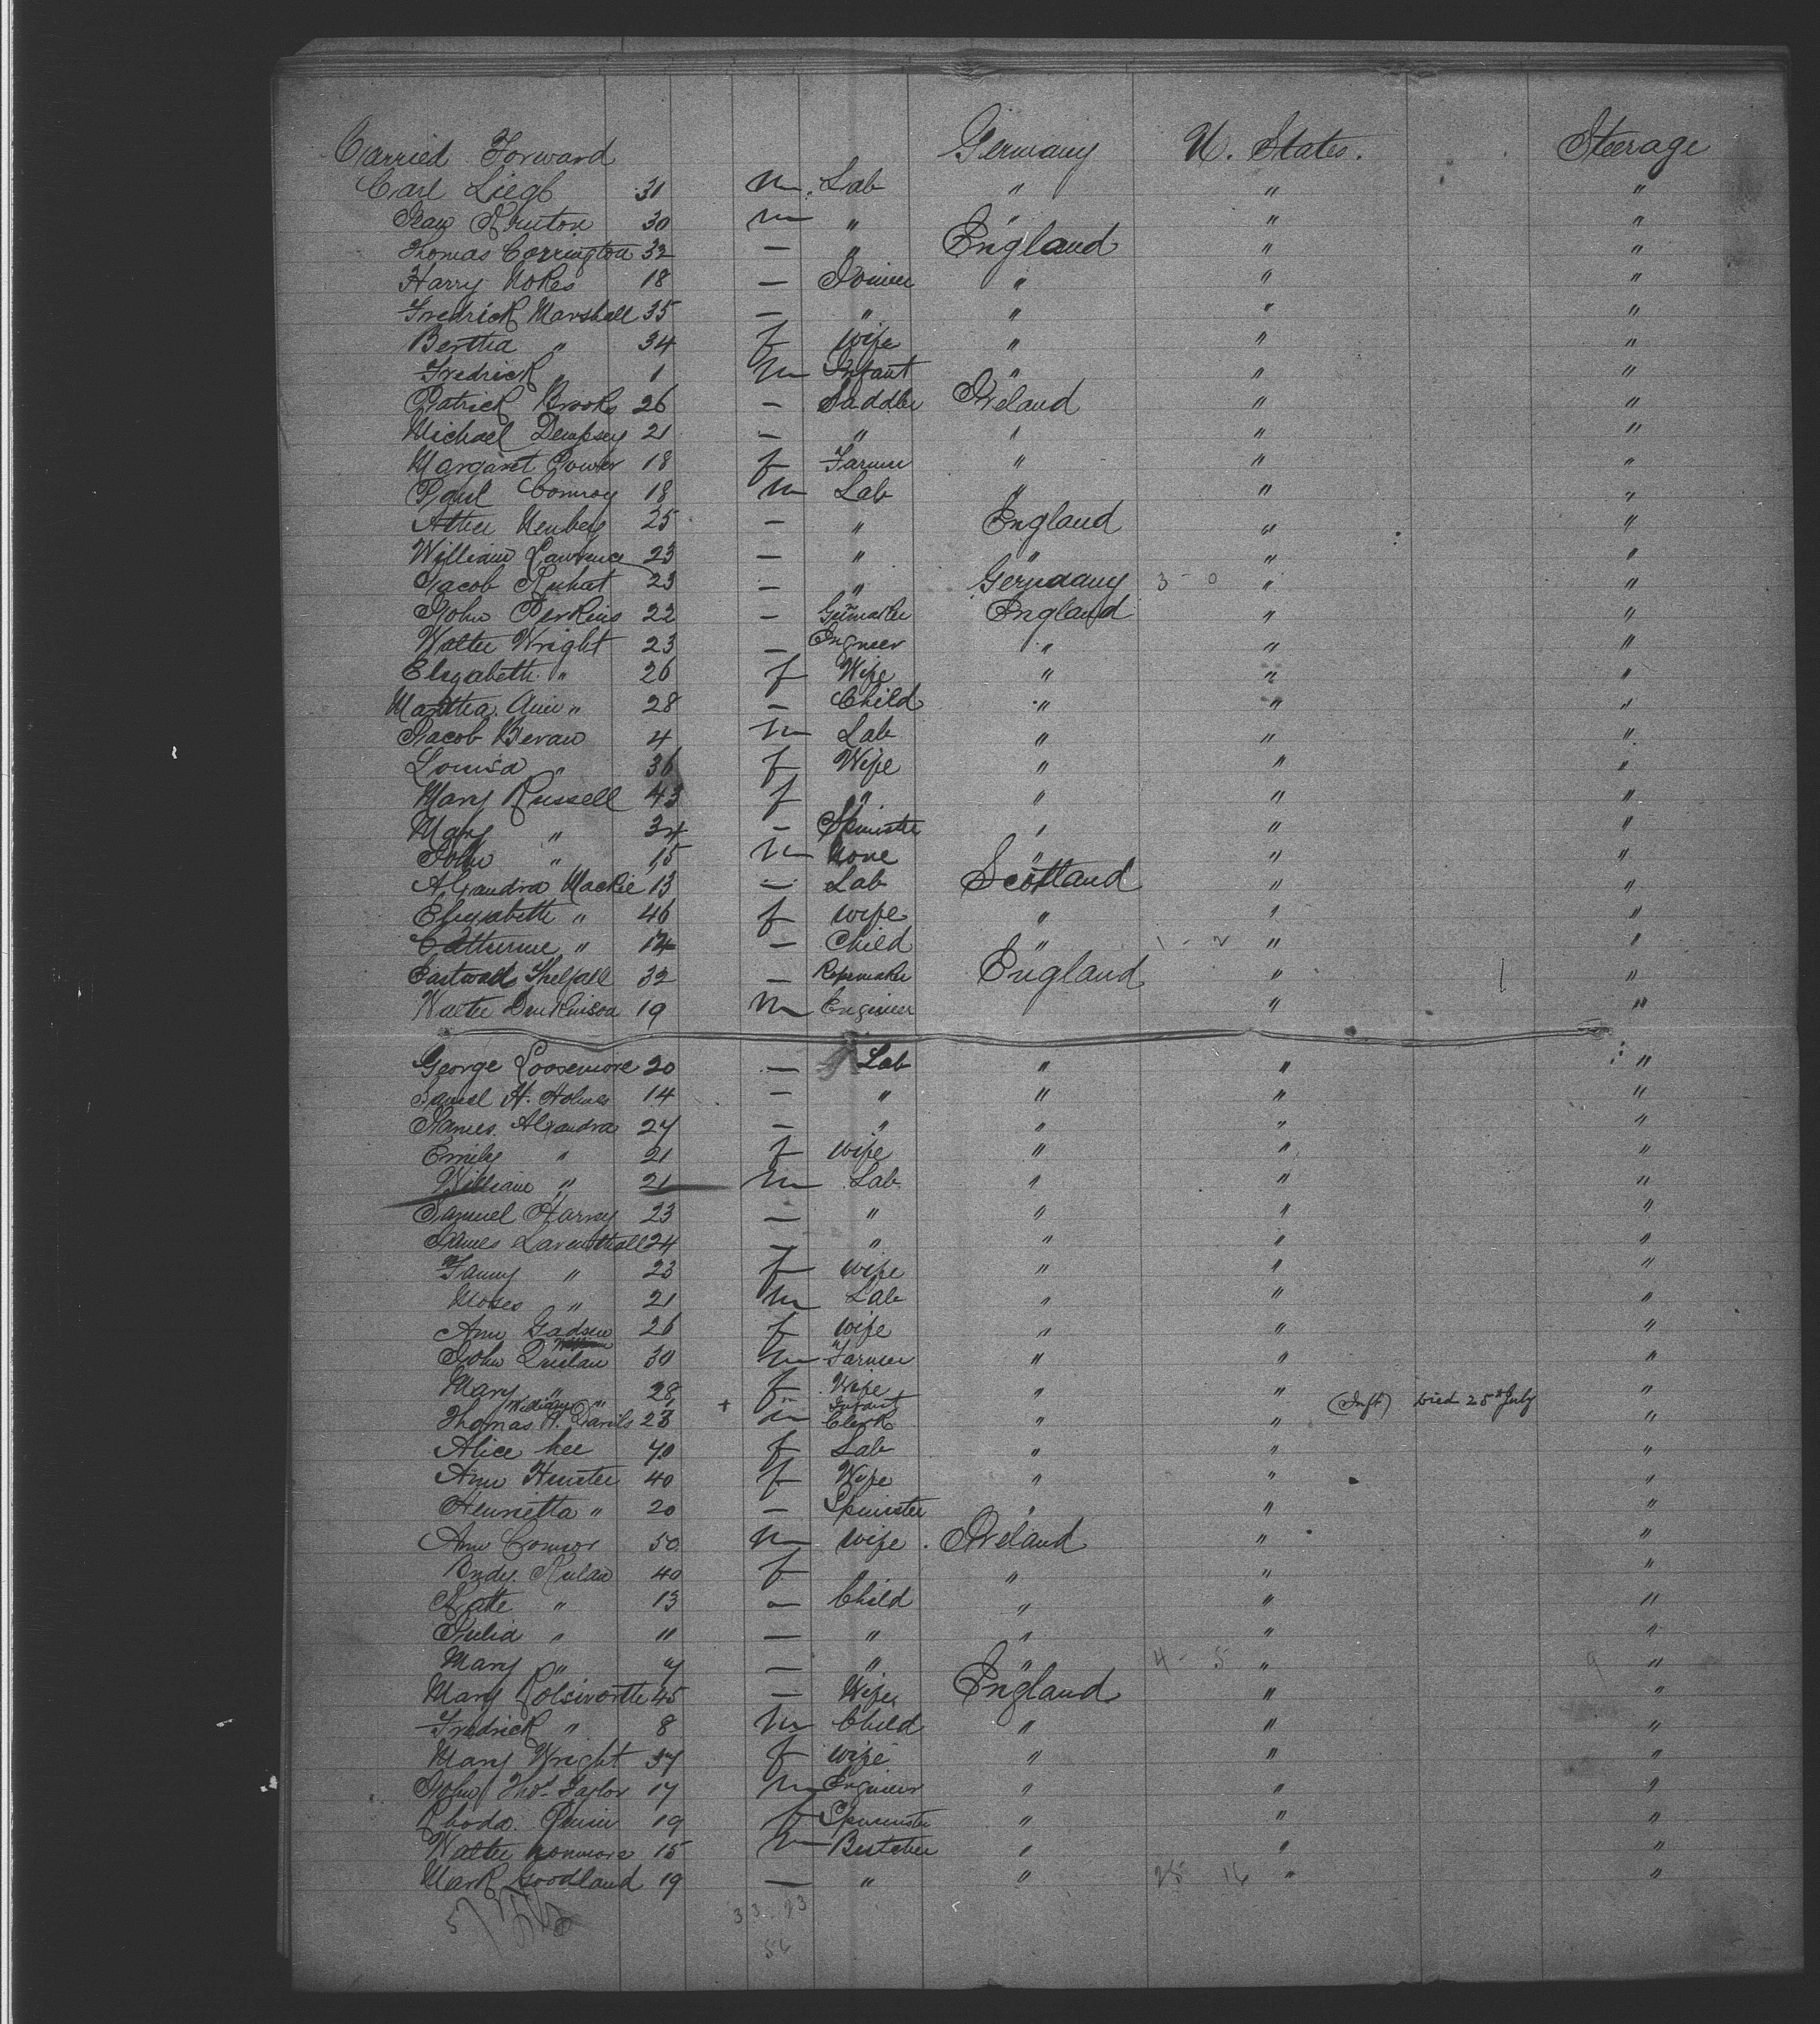 Carried Forward Germany U. States. Steerage
Carl Liegb 31 m Lab " " "
30 m " " " "
Thomas Corrington 32 — " England " "
Harry Nokes 18 — Joiner " " "
Fredrick Marshall 35 — " " " "
Bertha " 34 f Wife " " "
Fredrick " 1 m Infant " " "
Patrick Brooks 26 — Saddler Ireland " "
Michael Dempsey 21 — " " " "
Margaret Power 18 f Farmer " " "
Paul Conroy 18 m Lab " " "
25 — " England " "
William Lawrence 23 — " " " "
Jacob 23 — " Germany 3 - 0 " "
John Perkins 22 — England " "
Walter Wright 23 — Engneer " " "
Elizabeth " 26 f Wife " " "
Martha Ann " 28 — Child " " "
Jacob Bevan 4 m Lab " " "
Louisa " 36 f Wife " " "
Mary Russell 43 f " " " "
Mary " 34 — Spinster " " "
John " 15 m None " " "
Alexandra Mackie 13 — Lab Scottland " "
Elizabeth " 46 f wife " " "
Catherine " 14 — Child " 1 - 2 " "
Thelfall 32 — Ropemaker England " "
Walter Denkinson 19 m Engineer " "
George Loosemore 20 — Lab " " "
Samuel H. Holmes 14 — " " " "
James Alexandra 27 — " " " "
Emily " 21 f wife " " "
William " 21 m Lab " " "
Samuel Harvey 23 — " " " "
James Laventhall 24 — " " " "
Fanny " 23 f wife " " "
Moses " 21 m Lab " " "
Ann Gadsen 26 f wife " " "
John Quilan 30 m Farmer " " "
Mary " 28 f Wife " " "
William " + Infant (Inft) Died 25th July
Thomas P. Davils 23 m Clerk " " "
Alice Lee 40 f Lab " " "
Ann Hunter 40 f Wife " " "
Henrietta " 20 — Spinster " " "
Ann Connor 50 m wife Ireland " "
40 f " " "
Kate " 13 — Child " " "
Julia " 11 — " " " "
Mary " 7 — " " 4 - 5 " 9 "
Mary Rolsworth 45 — Wife England " "
Fredrick " 8 m Child " " "
Mary Wright 37 f wife " " "
John Thos Taylor 17 m Engineer " " "
Rhoda 19 f Spinster " " "
Walter 15 m Butcher " " "
Mark Goodland 19 — " " 25 16 " "
57
33 - 23
56